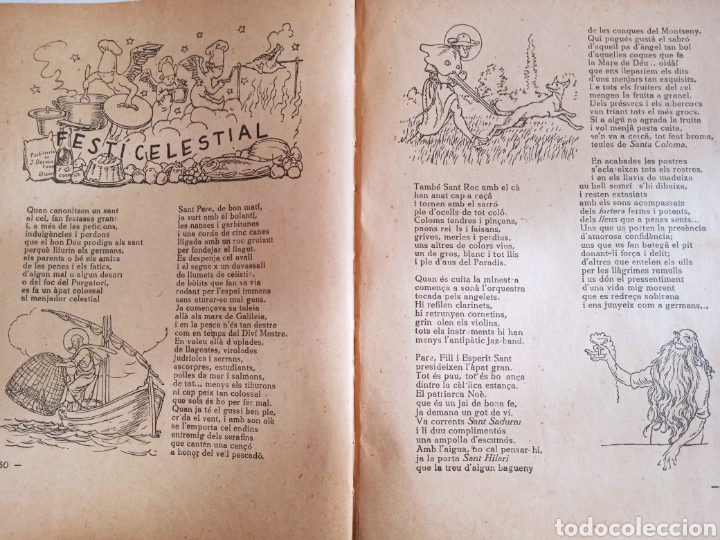 FESTÍ CELESTIAL
Quan canonitzen un sant
al cel, fan festasse gran:
i, a més de les peticions,
indulgències i perdons
que el bon Déu prodiga als sant
perquè lliurin els germans,
els parents o bé els amics
de les penes i els fatics,
d'algun mal o algun desori
o del foc del Purgatori,
es fa un àpat colossal
al menjador celestial
30 —
Sant Pere, de bon matí,
ja surt amb el bolantí,
les nanses i gerbitanes
i una corda de cinc canes
lligada amb un roc gruixut
per fondejar el llagut.
Es despenja cel avall
i el segueix un davassall
de llumets de celístia,
de bòlits que fan sa via
rodant per l'espai immens
sens aturar-se mai gens.
Ja començava sa taleia
allà als mars de Galileia,
i en la pesca n'és tan destre
com en temps del Diví Mestre.
En voleu allà duplades,
de llagostes, virolades
judrioles i serrans,
escorpres, estudiants,
polles de mar i salmons,
de tot... menys els tiburons
ni cap peix tan colossal
que sols és bo per fer mal.
Quan ja té el gussi ben ple,
cr'da el vent, i amb son alè
se l'emporta cel endins
entremig dels serafins
que canten una cançó
a honor del vell pescadó.
També Sant Roc amb el cà
han anat cap a caçà
i tornen amb el sarró
ple d'ocells de tot coló.
Coloms tendres i pinçans,
paons rei ls i faisans,
grives, merles i perdius,
uns altres de colors vius,
un de gros, blanc i tot llis
i ple d'aus del Paradís.
Quan és cuita la minestra
comença a sonà l'orquestra
tocada pels angelets.
Hi refilen clarinets,
hi retrunyen cornetins,
grin olen els violins,
tots els instruments hi han
menys l'antipàtic jaz-band.
Pare, Fill i Esperit Sant
presideixen l'àpat gran.
Tot és pau, tot és bo ança
dintre la cèl·lica estança.
El patriarca Noè,
que és un jai de bona fe,
ja demana un got de vi.
Va corrents Sant Sadurní
i li duu complimentós
una ampolla d'escumós.
Amb l'aigua, no cal pensar-hi,
ja la porta Sant Hilari
que la treu d'algun bagueny
de les conques del Montseny.
Qui pogués gustá el sabró
d'aquell pa d'àngel tan bo!
d'aquelles coques que fa
la Mare de Déu .. oidà!
que ens lleparíem els dits
d'uns menjars tan exquisits.
I e tots els fruiters del cel
mengen la fruita a granel.
Dels préssecs i els abercocs
van triant tots el més grocs.
Si a algú no agrada la fruita
i vol menjà pasta cuita,
se'n va a cercà, tot fent broma,
teules de Santa Coloma.
En acabades les postres
s'aclaraixen tots els rostres,
i en els llavis de maduixa
uu bell somrí s'hi dibuixa,
i resten extasiats
amb els sons acompassats
dels forters ferms i potents,
dels lleus que a penes sents.
Uns que us porten la presència
d'amorosa confidència;
uns que us fan bategà el pit
donant-li força i delit;
d'altres que entelen els ulls
per les llàgrimes remulls
i us dón el pressentiment
d'una vida mig morent
que es redreça sobirana
i ens junyeix com a germans...
todocoleccion